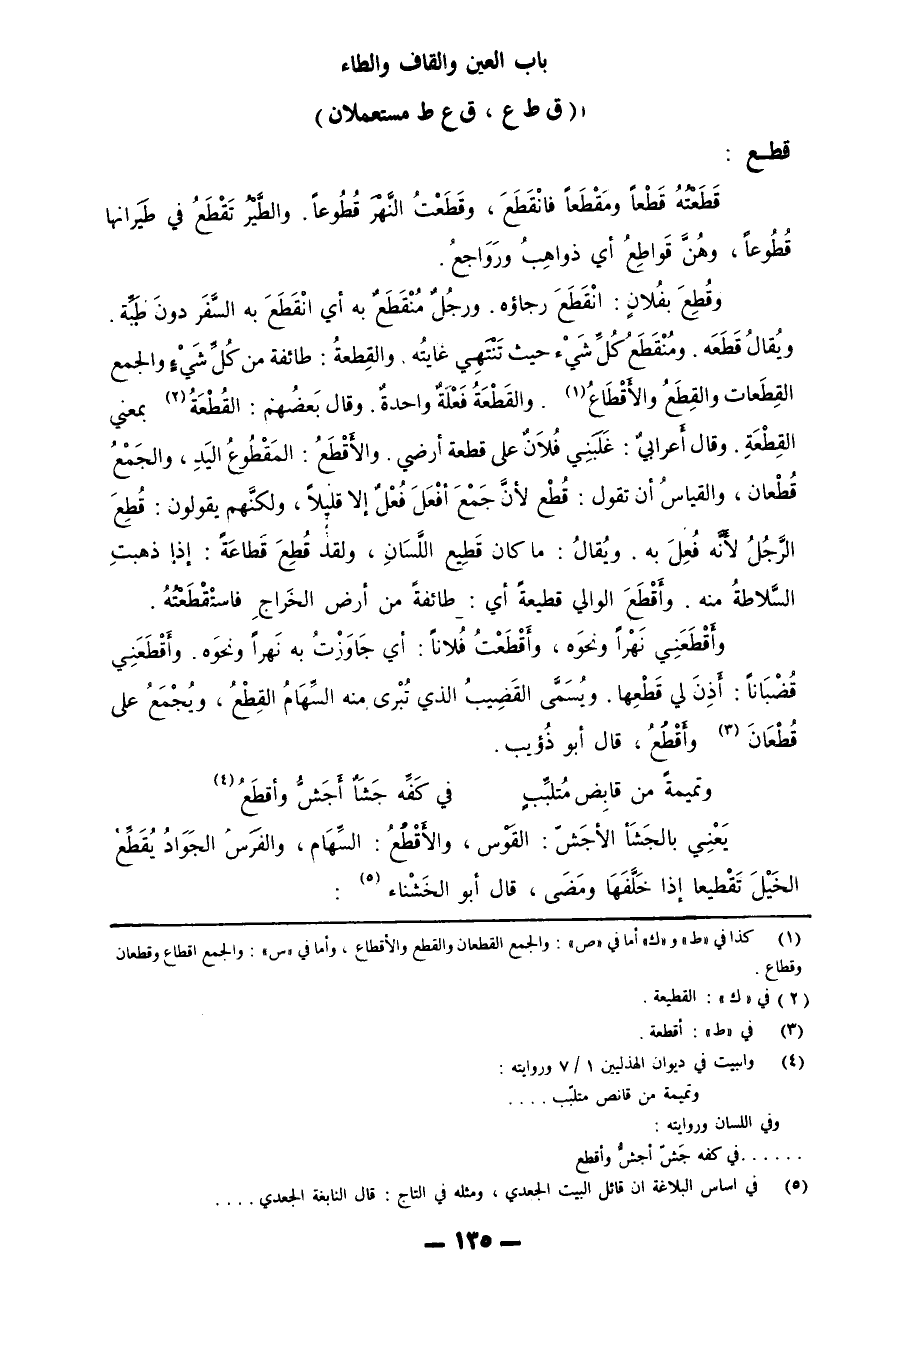 باب العين والقاف والطاء
(ق ط ع ، ق ع ط مستعملان)
قطع :
قَطَعْتُهُ قَطْعاً ومَقْطَعاً فانْقَطَعَ ، وقَطَعْتُ النَّهْرَ قُطُوعاً . والطَّيْرُ تَقْطَعُ في طَيَرانها
قُطُوعاً ، وهُنَّ قَواطِعُ أي ذواهِبُ ورَوَاجعُ .
وقُطِعَ بفُلانٍ : انْقَطَعَ رجاؤه . ورجُلٌ مُنْقَطَعٌ به أي انْقَطَعَ به السَّفَر دونَ طِيَّة .
ويُقالُ قَطَعَه . ومُنْقَطَعُ كُلِّ شَيْء حيث تَنْتَهِي غايتُه . والقِطعةُ : طائفة من كُلِّ شَيْءٍ والجمع
القِطَعات والقِطَعُ والأَقْطَاعُ (١) . والقَطْعَةُ فَعْلَةٌ واحدةٌ . وقال بَعضُهم : القُطْعَةُ (٢) بمعني
القِطْعَةِ . وقال أَعرابيٌ : غَلَبَنِي فُلاَنٌ على قطعة أرضي . والأَقْطَعُ : المَقْطُوعُ اليَدِ ، والجَمْعُ
قُطْعان ، والقياسُ أن تقول : قُطْع لأنَّ جَمْعَ أفْعَلَ فُعْلٌ إلا قليلاً ، ولكنَّهم يقولون : قُطِعَ
الرَّجُلُ لأَنَّه فُعِلَ به . ويُقالُ : ما كان قَطِيع اللَّسَانِ ، ولقد قُطِعَ قَطاعَةً : إذا ذهبتِ
السَّلاطةُ منه . وأَقْطَعَ الوالي قطيعةً أي : طائفةً من أرض الخَراجِ فاستقْطَعْتُهُ .
وأَقْطَعَنِي نَهْراً ونحوَه ، وأَقْطَعْتُ فُلاناً : أي جَاوَزْتُ به نَهراً ونحوَه . وأَقْطَعَنِي
قُضْبَاناً : أَذِنَ لي قَطْعِها . ويُسَمَّى القَضِيبُ الذي تُبْرى منه السِّهَامُ القِطْعُ ، ويُجْمَعُ على
قُطْعَانَ (٣) وأَقْطُعُ ، قال أبو ذُؤيب .
وتميمةً من قابِض مُتلبِّبٍ في كَفِّه جَشْأٌ أَجَشُّ وأقطَعُ (٤)
يَعْنِي بالجَشَأ الأجَشّ : القَوْس ، والأَقْطُعُ : السِّهَام ، والفَرَسُ الجَوَادُ يُقَطِّعُ
الخَيْلَ تَقْطيعا إذا خَلَّفَهَا ومَضَى ، قال أبو الخَشْناء (٥) :
(١) كذا في «ط» و «ك» أما في «ص» : والجمع القطعان والقطع والأقطاع ، وأما في «س» : والجمع اقطاع وقطعان
وقطاع .
(٢) في «ك» : القطيعة .
(٣) في «ط» : أقطعة .
(٤) والبيت في ديوان الهذليين ١ / ٧ وروايته :
وتميمة من قانص متلبّب . . . .
وفي اللسان وروايته :
. . . . . . في كفه جَشّ أجشُّ وأقطع
(٥) في اساس البلاغة ان قائل البيت الجعدي ، ومثله في التاج : قال النابغة الجعدي . . . .
— ١٣٥ —